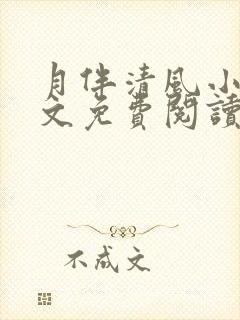 月伴清风小
文免費閱讀
不成文